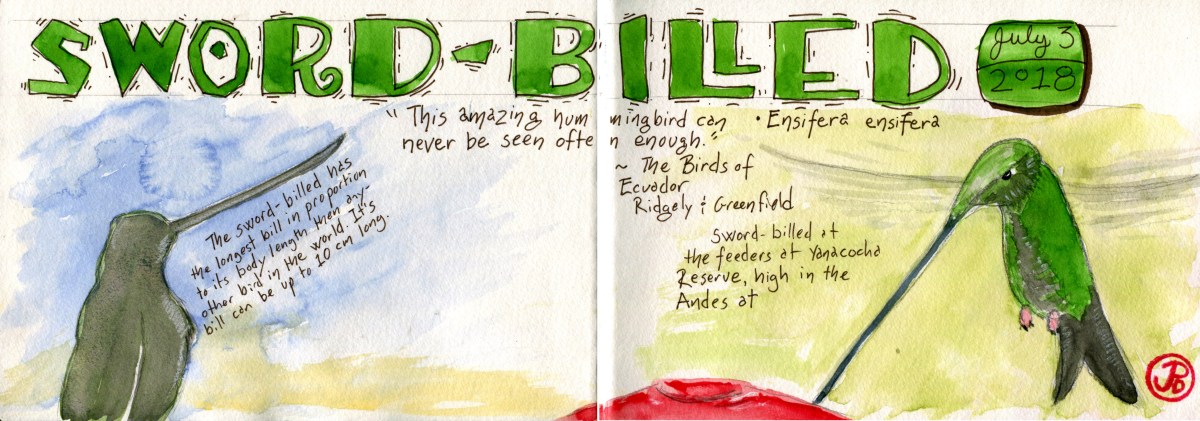 SWORD-BILLED
July 3
2018
"This amazing hummingbird can
never be seen often enough."
~ The Birds of
Ecuador
Ridgely & Greenfield
• Ensifera ensifera
The sword-billed has
the longest bill in proportion
to its body length then any-
other bird in the world. It's
bill can be up
to 10 cm long.
Sword-billed at
the feeders at Yanacocha
Reserve, high in the
Andes at
JPD